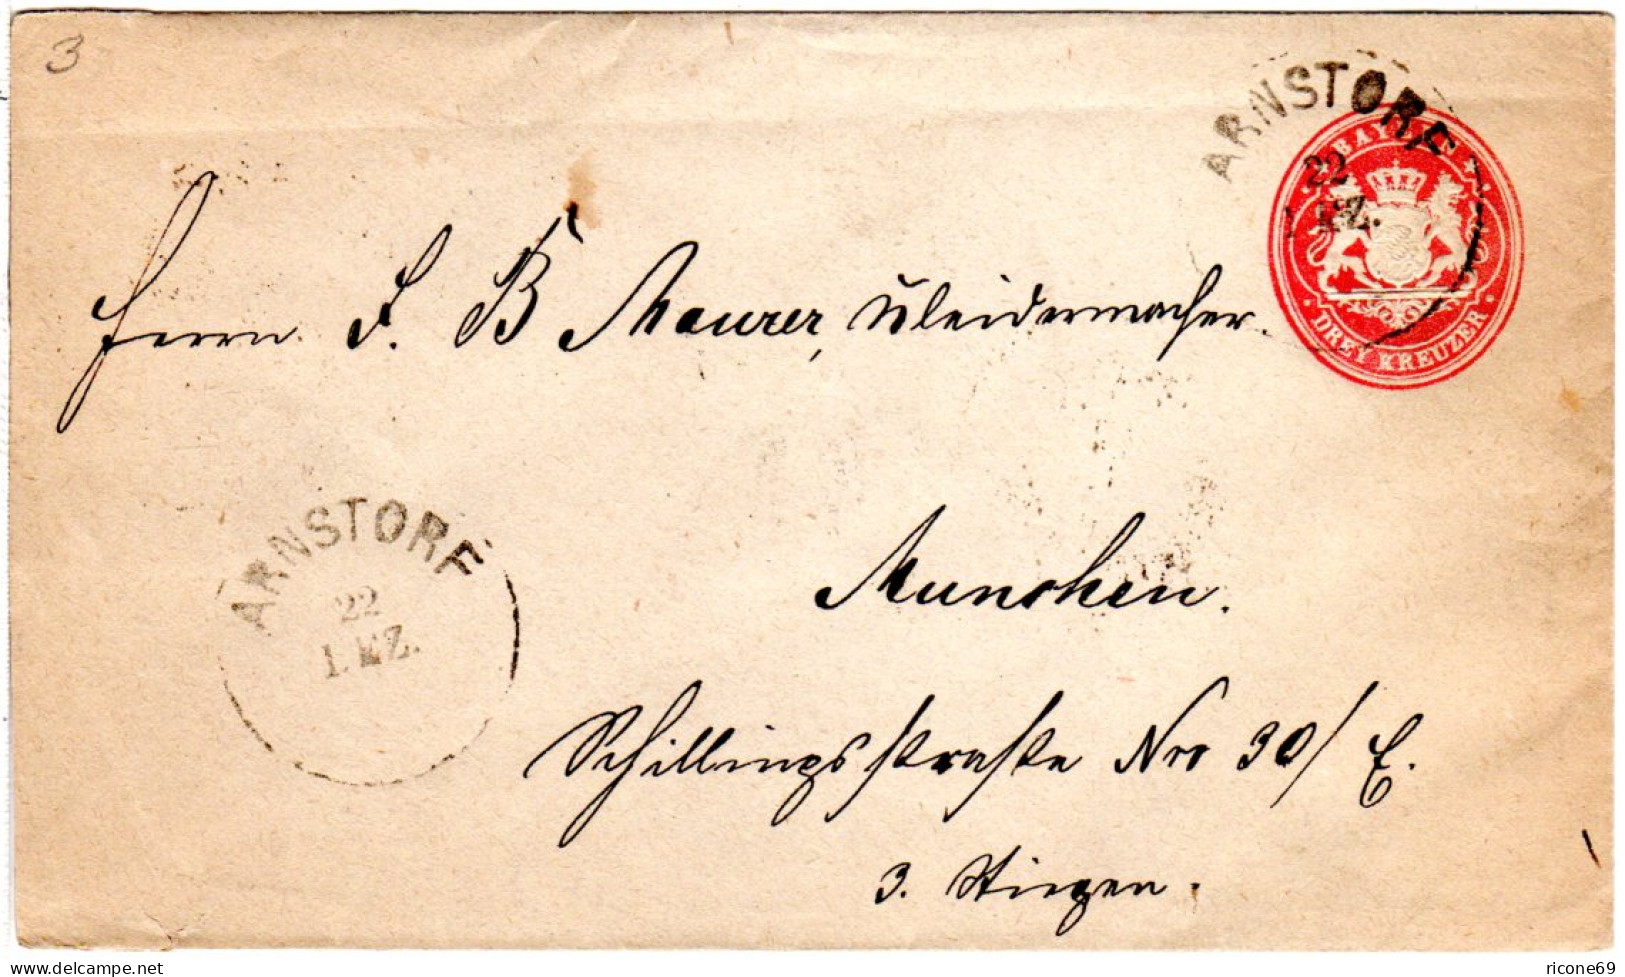 3
ARNSTORF
22
1. MZ.
BAYERN
DREY KREUZER
Herrn J. B Maurer, Kleidermacher.
ARNSTORF
22
1. MZ.
Munchen.
Schillingsstraße Nro 30/
3. Stiegen.
delcampe.net
ricone69